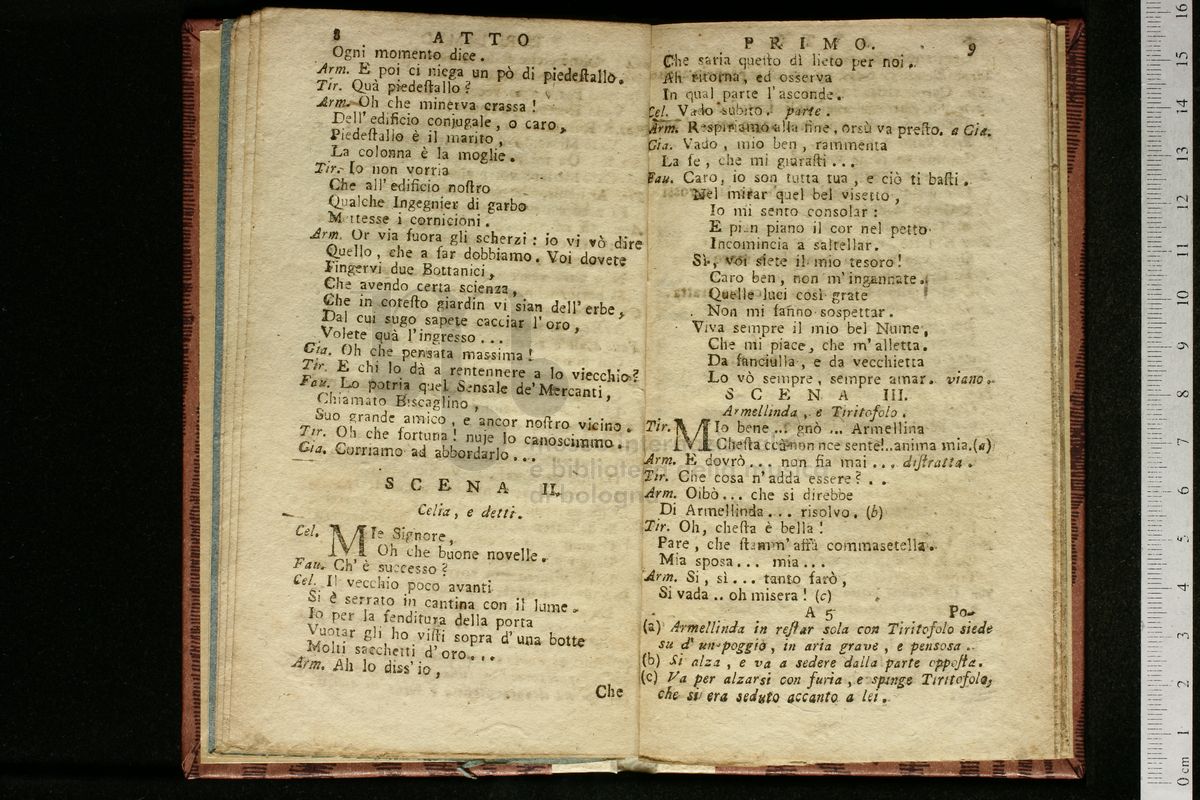 8 ATTO
Ogni momento dice.
Arm. E poi ci niega un pò di piedeſtallo.
Tir. Quà piedeſtallo?
Arm. Oh che minerva crassa!
Dell' edificio conjugale, o caro,
Piedeſtallo è il marito,
La colonna è la moglie.
Tir. Io non vorria
Che all' edificio noſtro
Qualche Ingegnier di garbo
Mettesse i cornicioni.
Arm. Or via fuora gli scherzi: io vi vò dire
Quello, che a far dobbiamo. Voi dovete
Fingervi due Bottanici,
Che avendo certa scienza,
Che in coteſto giardin vi sian dell' erbe,
Dal cui sugo sapete cacciar l' oro,
Volete quà l' ingresso...
Gia. Oh che pensata massima!
Tir. E chi lo dà a rentennere a lo viecchio?
Fau. Lo potria quel Sensale de' Mercanti,
Chiamato Biscaglino,
Suo grande amico, e ancor noſtro vicino.
Tir. Oh che fortuna! nuje lo canoscimmo.
Gia. Corriamo ad abbordarlo...
SCENA II.
Celia, e detti.
Cel. MIe Signore,
Oh che buone novelle.
Fau. Ch' è successo?
Cel. Il vecchio poco avanti
Si è serrato in cantina con il lume.
Io per la fenditura della porta
Vuotar gli ho viſti sopra d' una botte
Molti sacchetti d' oro...
Arm. Ah lo diss' io,
Che
PRIMO. 9
Che saria queſto dì lieto per noi.
Ah ritorna, ed osserva
In qual parte l' asconde.
Cel. Vado subito. parte.
Arm. Respiriamo alla fine, orsù va preſto. a Gia.
Gia. Vado, mio ben, rammenta
La fe, che mi giuraſti...
Fau. Caro, io son tutta tua, e ciò ti baſti.
Nel mirar quel bel visetto,
Io mi sento consolar:
E pian piano il cor nel petto
Incomincia a saltellar.
Sì, voi siete il mio tesoro!
Caro ben, non m' ingannate.
Quelle luci così grate
Non mi fanno sospettar.
Viva sempre il mio bel Nume,
Che mi piace, che m' alletta.
Da fanciulla, e da vecchietta
Lo vò sempre, sempre amar. viano.
SCENA III.
Armellinda, e Tiritofolo.
Tir. MIo bene ... gnò ... Armellina
Cheſta ccà non nce sente!..anima mia.(a)
Arm. E dovrò... non fia mai ... diſtratta.
Tir. Che cosa n' adda essere? ..
Arm. Oibò... che si direbbe
Di Armellinda... risolvo. (b)
Tir. Oh, cheſta è bella!
Pare, che ſtamm' affà commasetella.
Mia sposa... mia...
Arm. Si, sì... tanto farò,
Si vada .. oh misera! (c)
A 5 Po-
(a) Armellinda in reſtar sola con Tiritofolo siede
su d' un poggio, in aria grave, e pensosa.
(b) Si alza, e va a sedere dalla parte oppoſta.
(c) Va per alzarsi con furia, e spinge Tiritofolo,
che si era seduto accanto a lei.